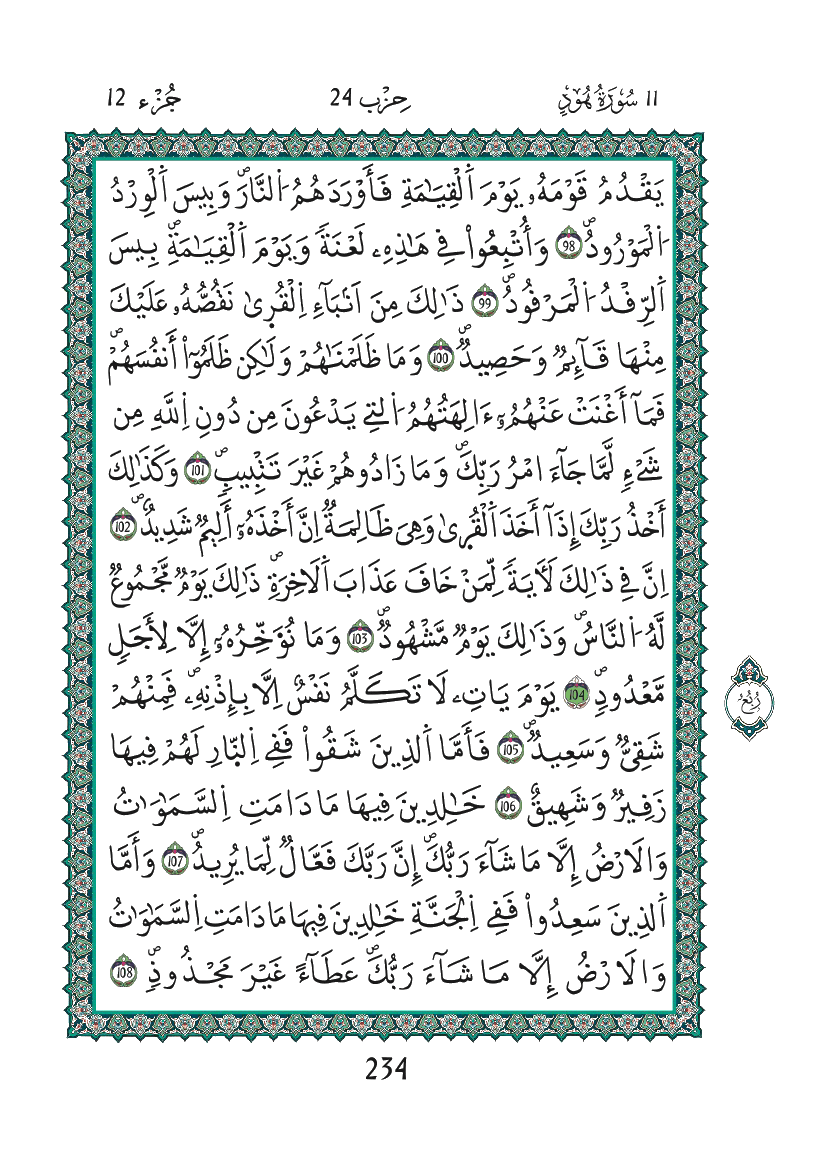 11 سُورَةُ هُودٍ حِزْب 24 جُزْء 12
يَقْدُمُ قَوْمَهُۥ يَوْمَ اَ۬لْقِيَٰمَةِ فَأَوْرَدَهُمُ اُ۬لنَّارَۖ وَبِيسَ اَ۬لْوِرْدُ
اُ۬لْمَوْرُودُۖ 98 وَأُتْبِعُواْ فِے هَٰذِهِۦ لَعْنَةٗ وَيَوْمَ اَ۬لْقِيَٰمَةِۖ بِيسَ
اَ۬لرِّفْدُ اُ۬لْمَرْفُودُۖ 99 ذَٰلِكَ مِنَ اَنۢبَآءِ اِ۬لْقُر۪ىٰ نَقُصُّهُۥ عَلَيْكَ
مِنْهَا قَآئِمٞ وَحَصِيدٞۖ 100 وَمَا ظَلَمْنَٰهُمْ وَلَٰكِن ظَلَمُوٓاْ أَنفُسَهُمْۖ
فَمَآ أَغْنَتْ عَنْهُمُۥٓ ءَالِهَتُهُمُ اُ۬لتِے يَدْعُونَ مِن دُونِ اِ۬للَّهِ مِن
شَےْءٖ لَّمَّا جَآءَ امْرُ رَبِّكَۖ وَمَا زَادُوهُمْ غَيْرَ تَتْبِيبٖۖ 101 وَكَذَٰلِكَ
أَخْذُ رَبِّكَ إِذَآ أَخَذَ اَ۬لْقُر۪ىٰ وَهِيَ ظَٰلِمَةٌۖ اِنَّ أَخْذَهُۥٓ أَلِيمٞ شَدِيدٌۖ 102
اِنَّ فِے ذَٰلِكَ لَأٓيَةٗ لِّمَنْ خَافَ عَذَابَ اَ۬لَاخِرَةِۖ ذَٰلِكَ يَوْمٞ مَّجْمُوعٞ
لَّهُ اُ۬لنَّاسُۖ وَذَٰلِكَ يَوْمٞ مَّشْهُودٞۖ 103 وَمَا نُؤَخِّرُهُۥٓ إِلَّا لِأَجَلٖ
مَّعْدُودٖۖ 104 يَوْمَ يَاتِۦ لَا تَكَلَّمُ نَفْسٌ اِلَّا بِإِذْنِهِۦۖ فَمِنْهُمْ
شَقِيّٞ وَسَعِيدٞۖ 105 فَأَمَّا اَ۬لذِينَ شَقُواْ فَفِے اِ۬لنّ۪ارِ لَهُمْ فِيهَا
زَفِيرٞ وَشَهِيقٌ 106 خَٰلِدِينَ فِيهَا مَا دَامَتِ اِ۬لسَّمَٰوَٰتُ
وَالَارْضُ إِلَّا مَا شَآءَ رَبُّكَۖ إِنَّ رَبَّكَ فَعَّالٞ لِّمَا يُرِيدُۖ 107 وَأَمَّا
اَ۬لذِينَ سَعِدُواْ فَفِے اِ۬لْجَنَّةِ خَٰلِدِينَ فِيهَا مَا دَامَتِ اِ۬لسَّمَٰوَٰتُ
وَالَارْضُ إِلَّا مَا شَآءَ رَبُّكَۖ عَطَآءً غَيْرَ مَجْذُوذٖۖ 108
رُبُع
234